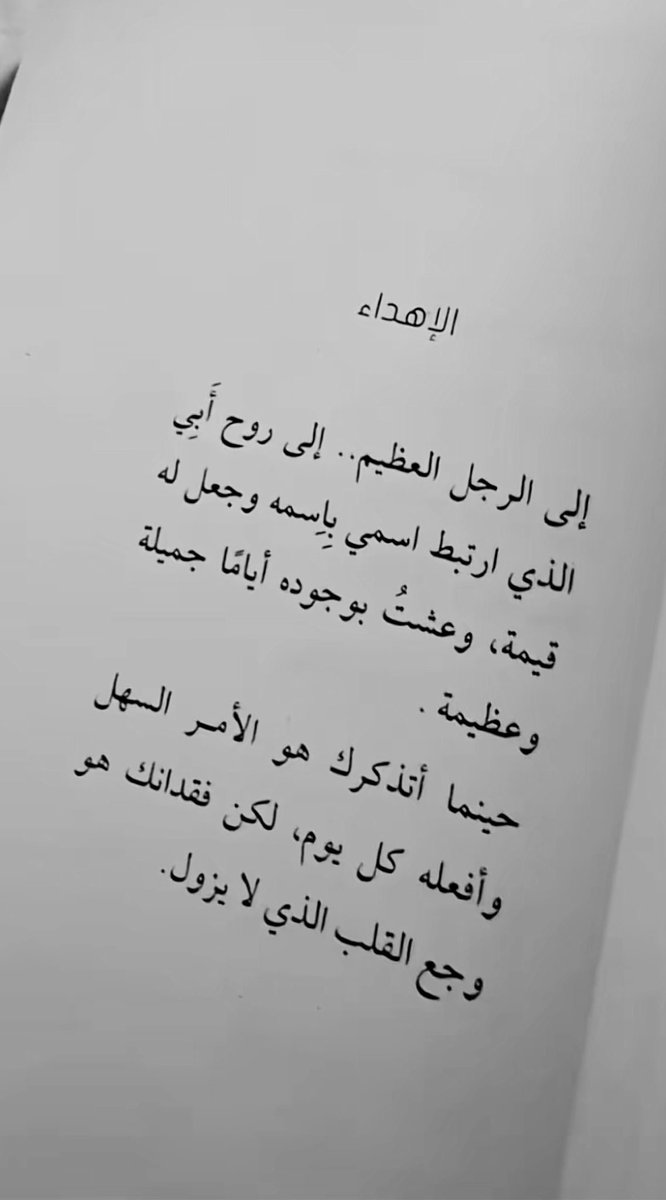 الإهداء
إلى الرجل العظيم.. إلى روح أَبِي
الذي ارتبط اسمي بِاِسمه وجعل له
قيمة، وعشتُ بوجوده أيامًا جميلة
وعظيمة .
حينما أتذكرك هو الأمر السهل
وأفعله كل يوم، لكن فقدانك هو
وجع القلب الذي لا يزول.